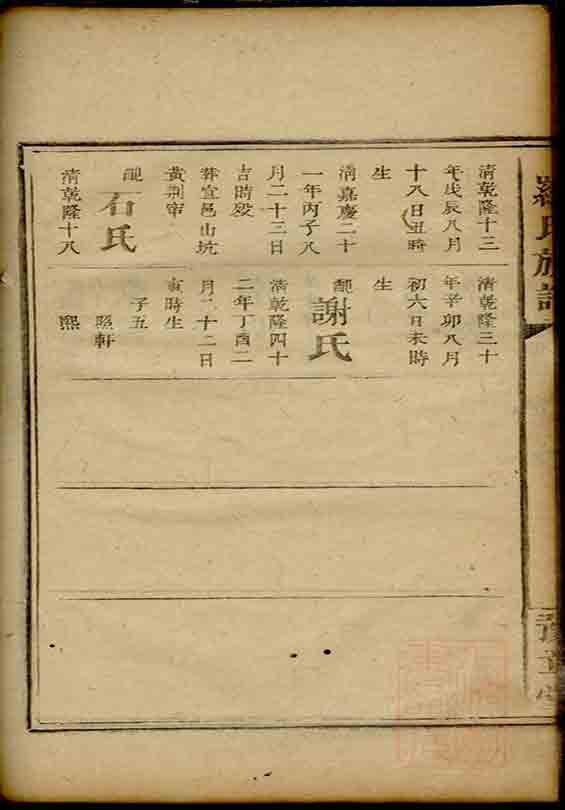 羅氏族譜
清乾隆十三
年戊辰八月
十八日丑時
生
清嘉慶二十
一年丙子八
月二十三日
吉時歿
葬宜邑山坑
黃荆窩
配石氏
清乾隆十八
清乾隆三十
年辛卯八月
初六日未時
生
配謝氏
清乾隆四十
二年丁酉二
月二十二日
寅時生
子五
照軒
熙
豫章堂